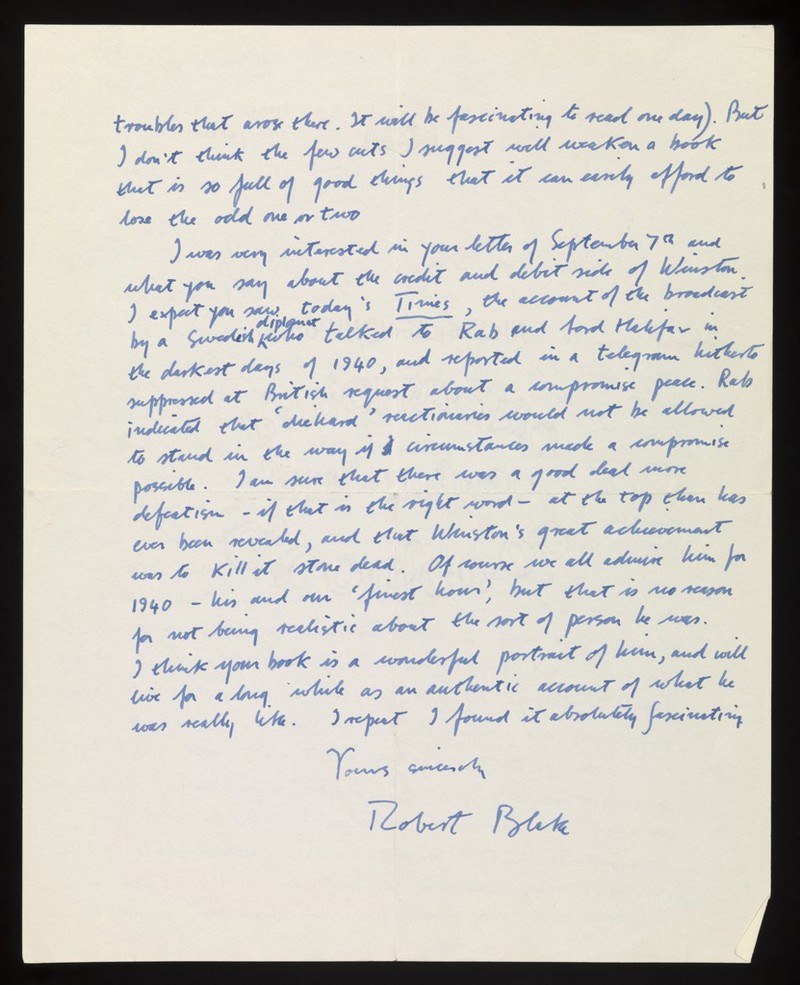 troubles that arose there. It will be fascinating to read one day). But
I don't think the few cuts I suggest will weaken a book
that is so full of good things that it can easily afford to
lose the odd one or two
I was very interested in your letter of September 7th and
what you say about the credit and debit side of Winston.
I expect you saw today's Times, the account of the broadcast
by a Swedish diplomat who talked to Rab and Lord Halifax in
the darkest days of 1940, and reported in a telegram hitherto
suppressed at British request about a compromise peace. Rab
indicated that 'diehard' reactionaries would not be allowed
to stand in the way if circumstances made a compromise
possible. I am sure that there was a good deal more
defeatism - if that is the right word - at the top than has
ever been revealed, and that Winston's great achievement
was to kill it stone dead. Of course we all admire him for
1940 - his and our 'finest hour', but that is no reason
for not being realistic about the sort of person he was.
I think your book is a wonderful portrait of him, and will
live for a long while as an authentic account of what he
was really like. I repeat I found it absolutely fascinating
Yours sincerely
Robert Blake